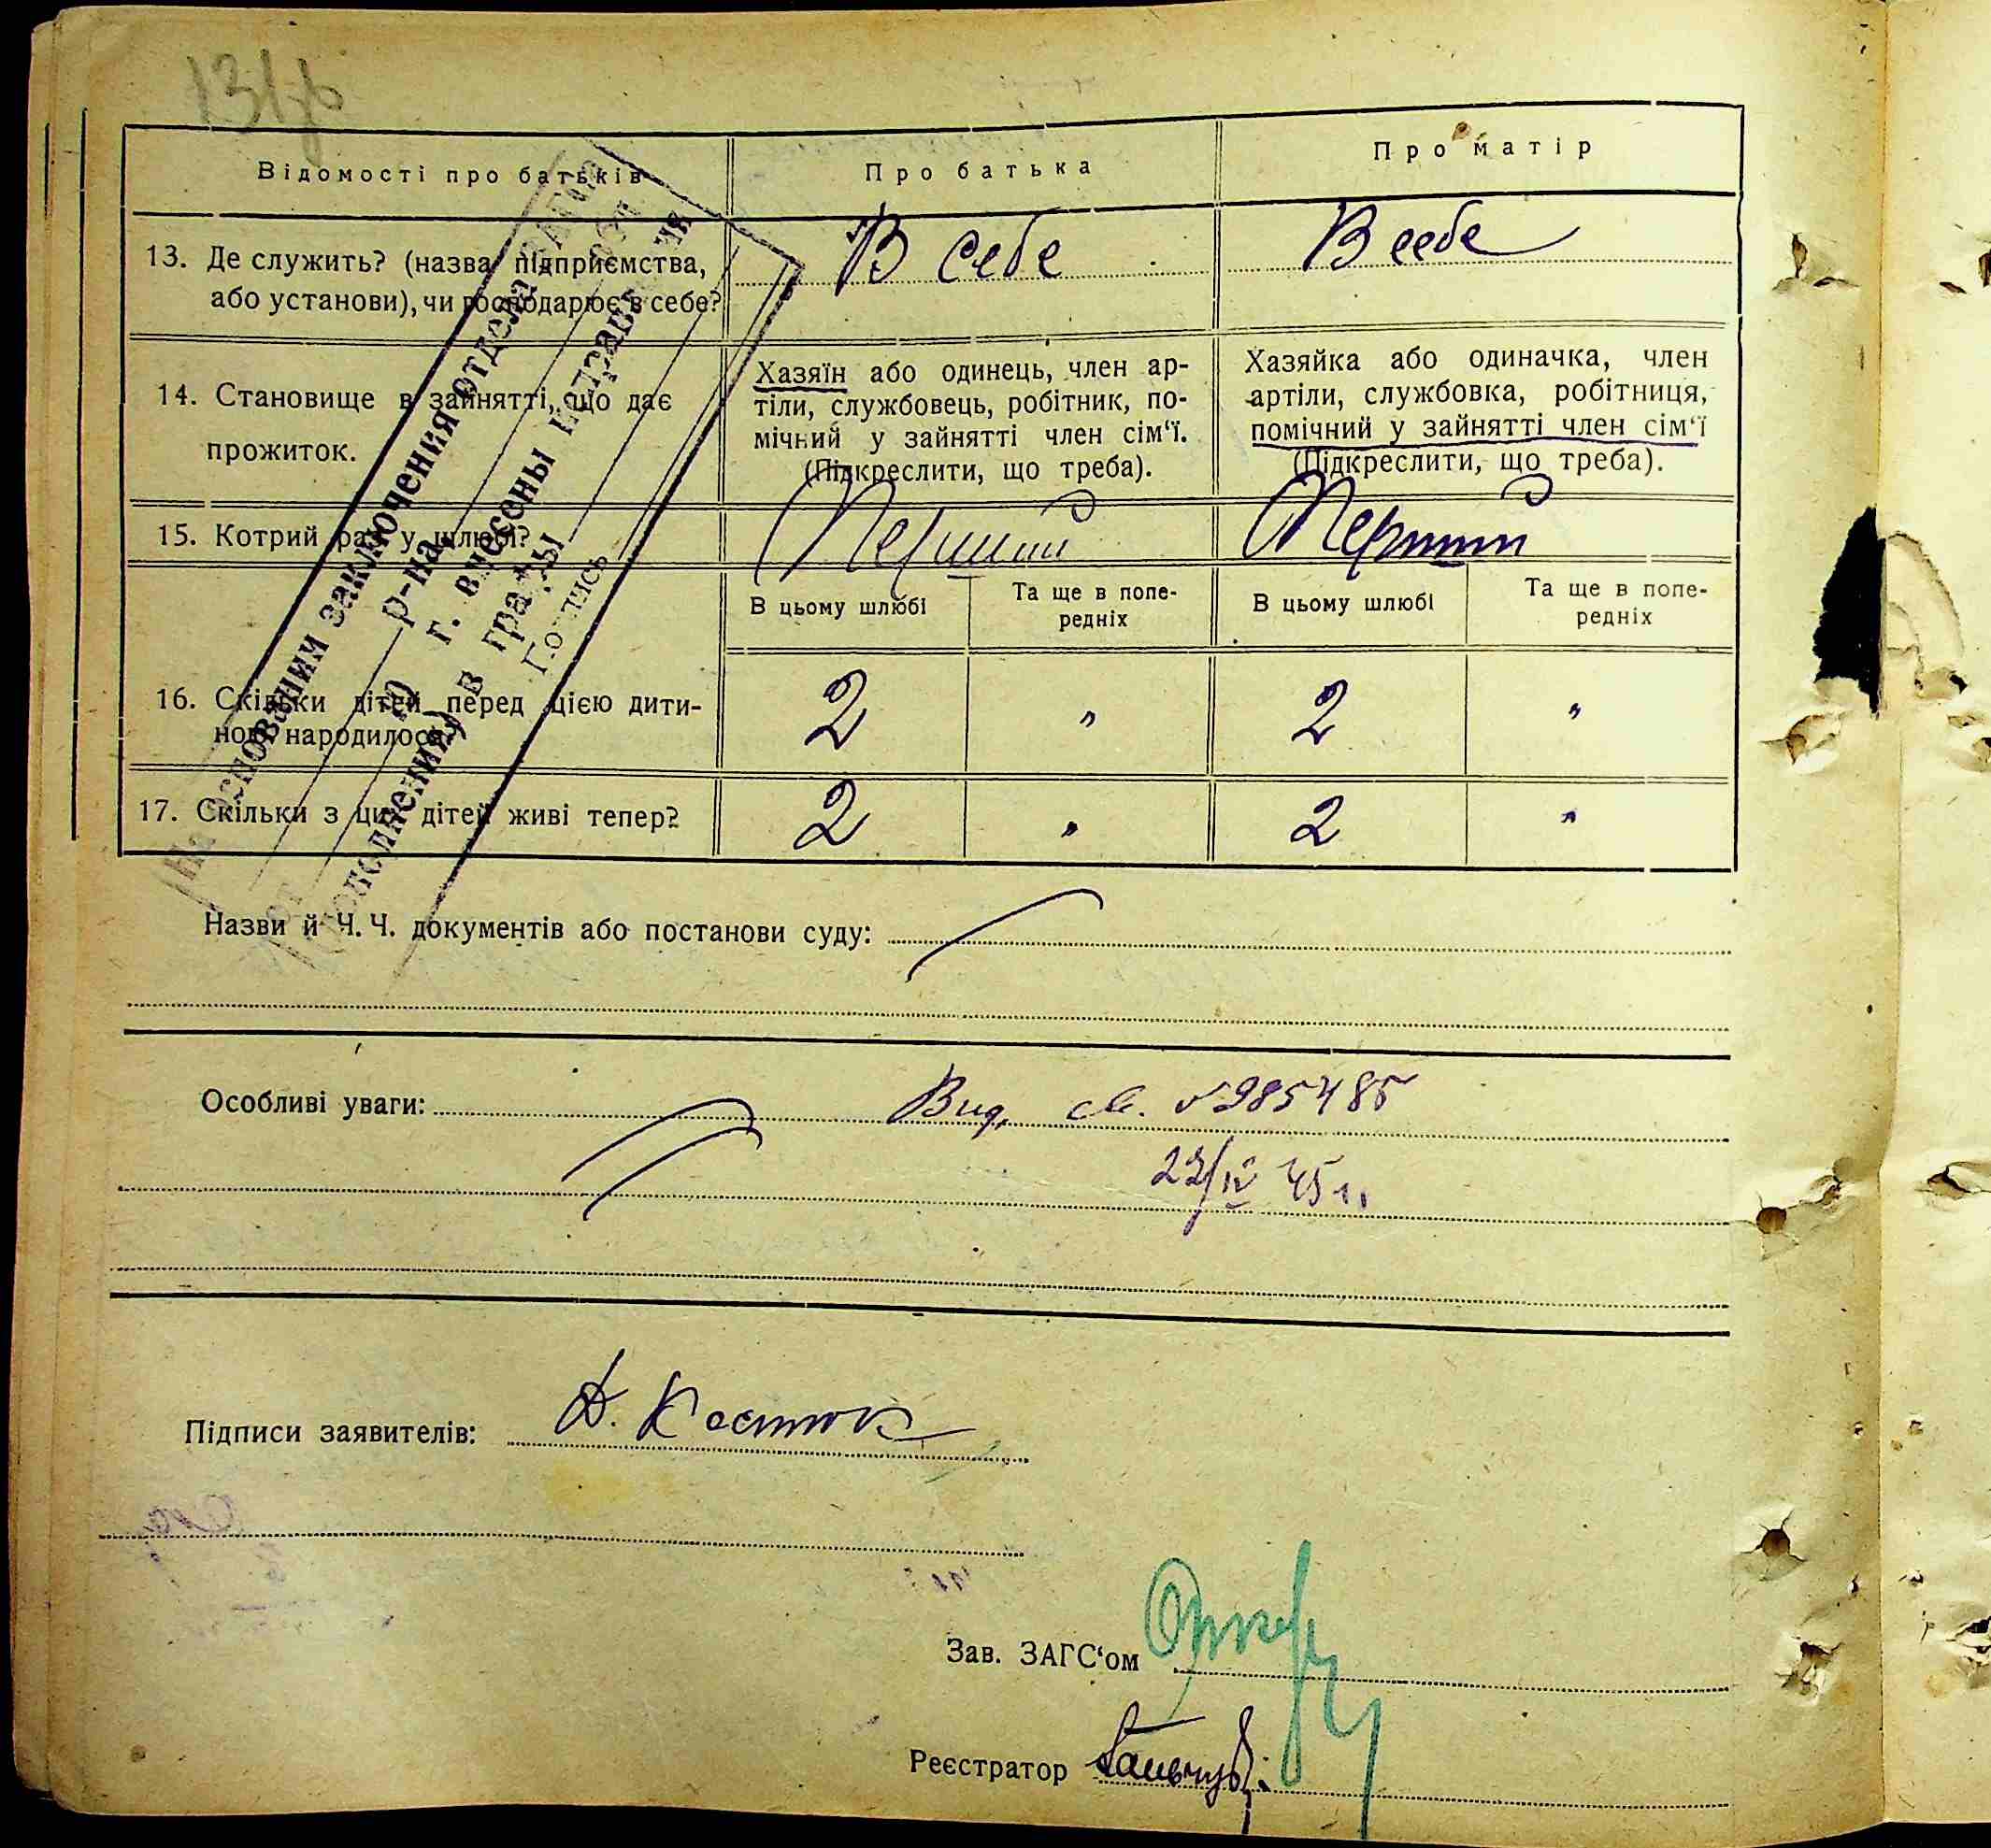 Відомості про батьків
Про батька
Про матір
13. Де служить? (назва підприємства,
або установи), чи господарює в себе?
В себе
В себе
14. Становище в зайнятті, що дає
прожиток.
Хазяїн або одинець, член ар-
тіли, службовець, робітник, по-
мічний у зайнятті член сім‘ї.
(Підкреслити, що треба).
Хазяйка або одиначка, член
артіли, службовка, робітниця,
помічний у зайнятті член сім‘ї
(Підкреслити, що треба).
15. Котрий раз у шлюбі?
Перший
Перший
В цьому шлюбі
Та ще в попе-
редніх
В цьому шлюбі
Та ще в попе-
редніх
16. Скільки дітей перед цією дити-
ною народилося?
2
"
2
"
17. Скільки з цих дітей живі тепер?
2
"
2
"
На основании заключения отдела ЗАГСа
р-на
от г. внесены исправления
(дополнения) в графы
Подпись
Назви й Ч. Ч. документів або постанови суду:
Особливі уваги:
Вид. св. № 985485
22/IV 45 г.
Підписи заявителів:
Зав. ЗАГС‘ом
Реєстратор